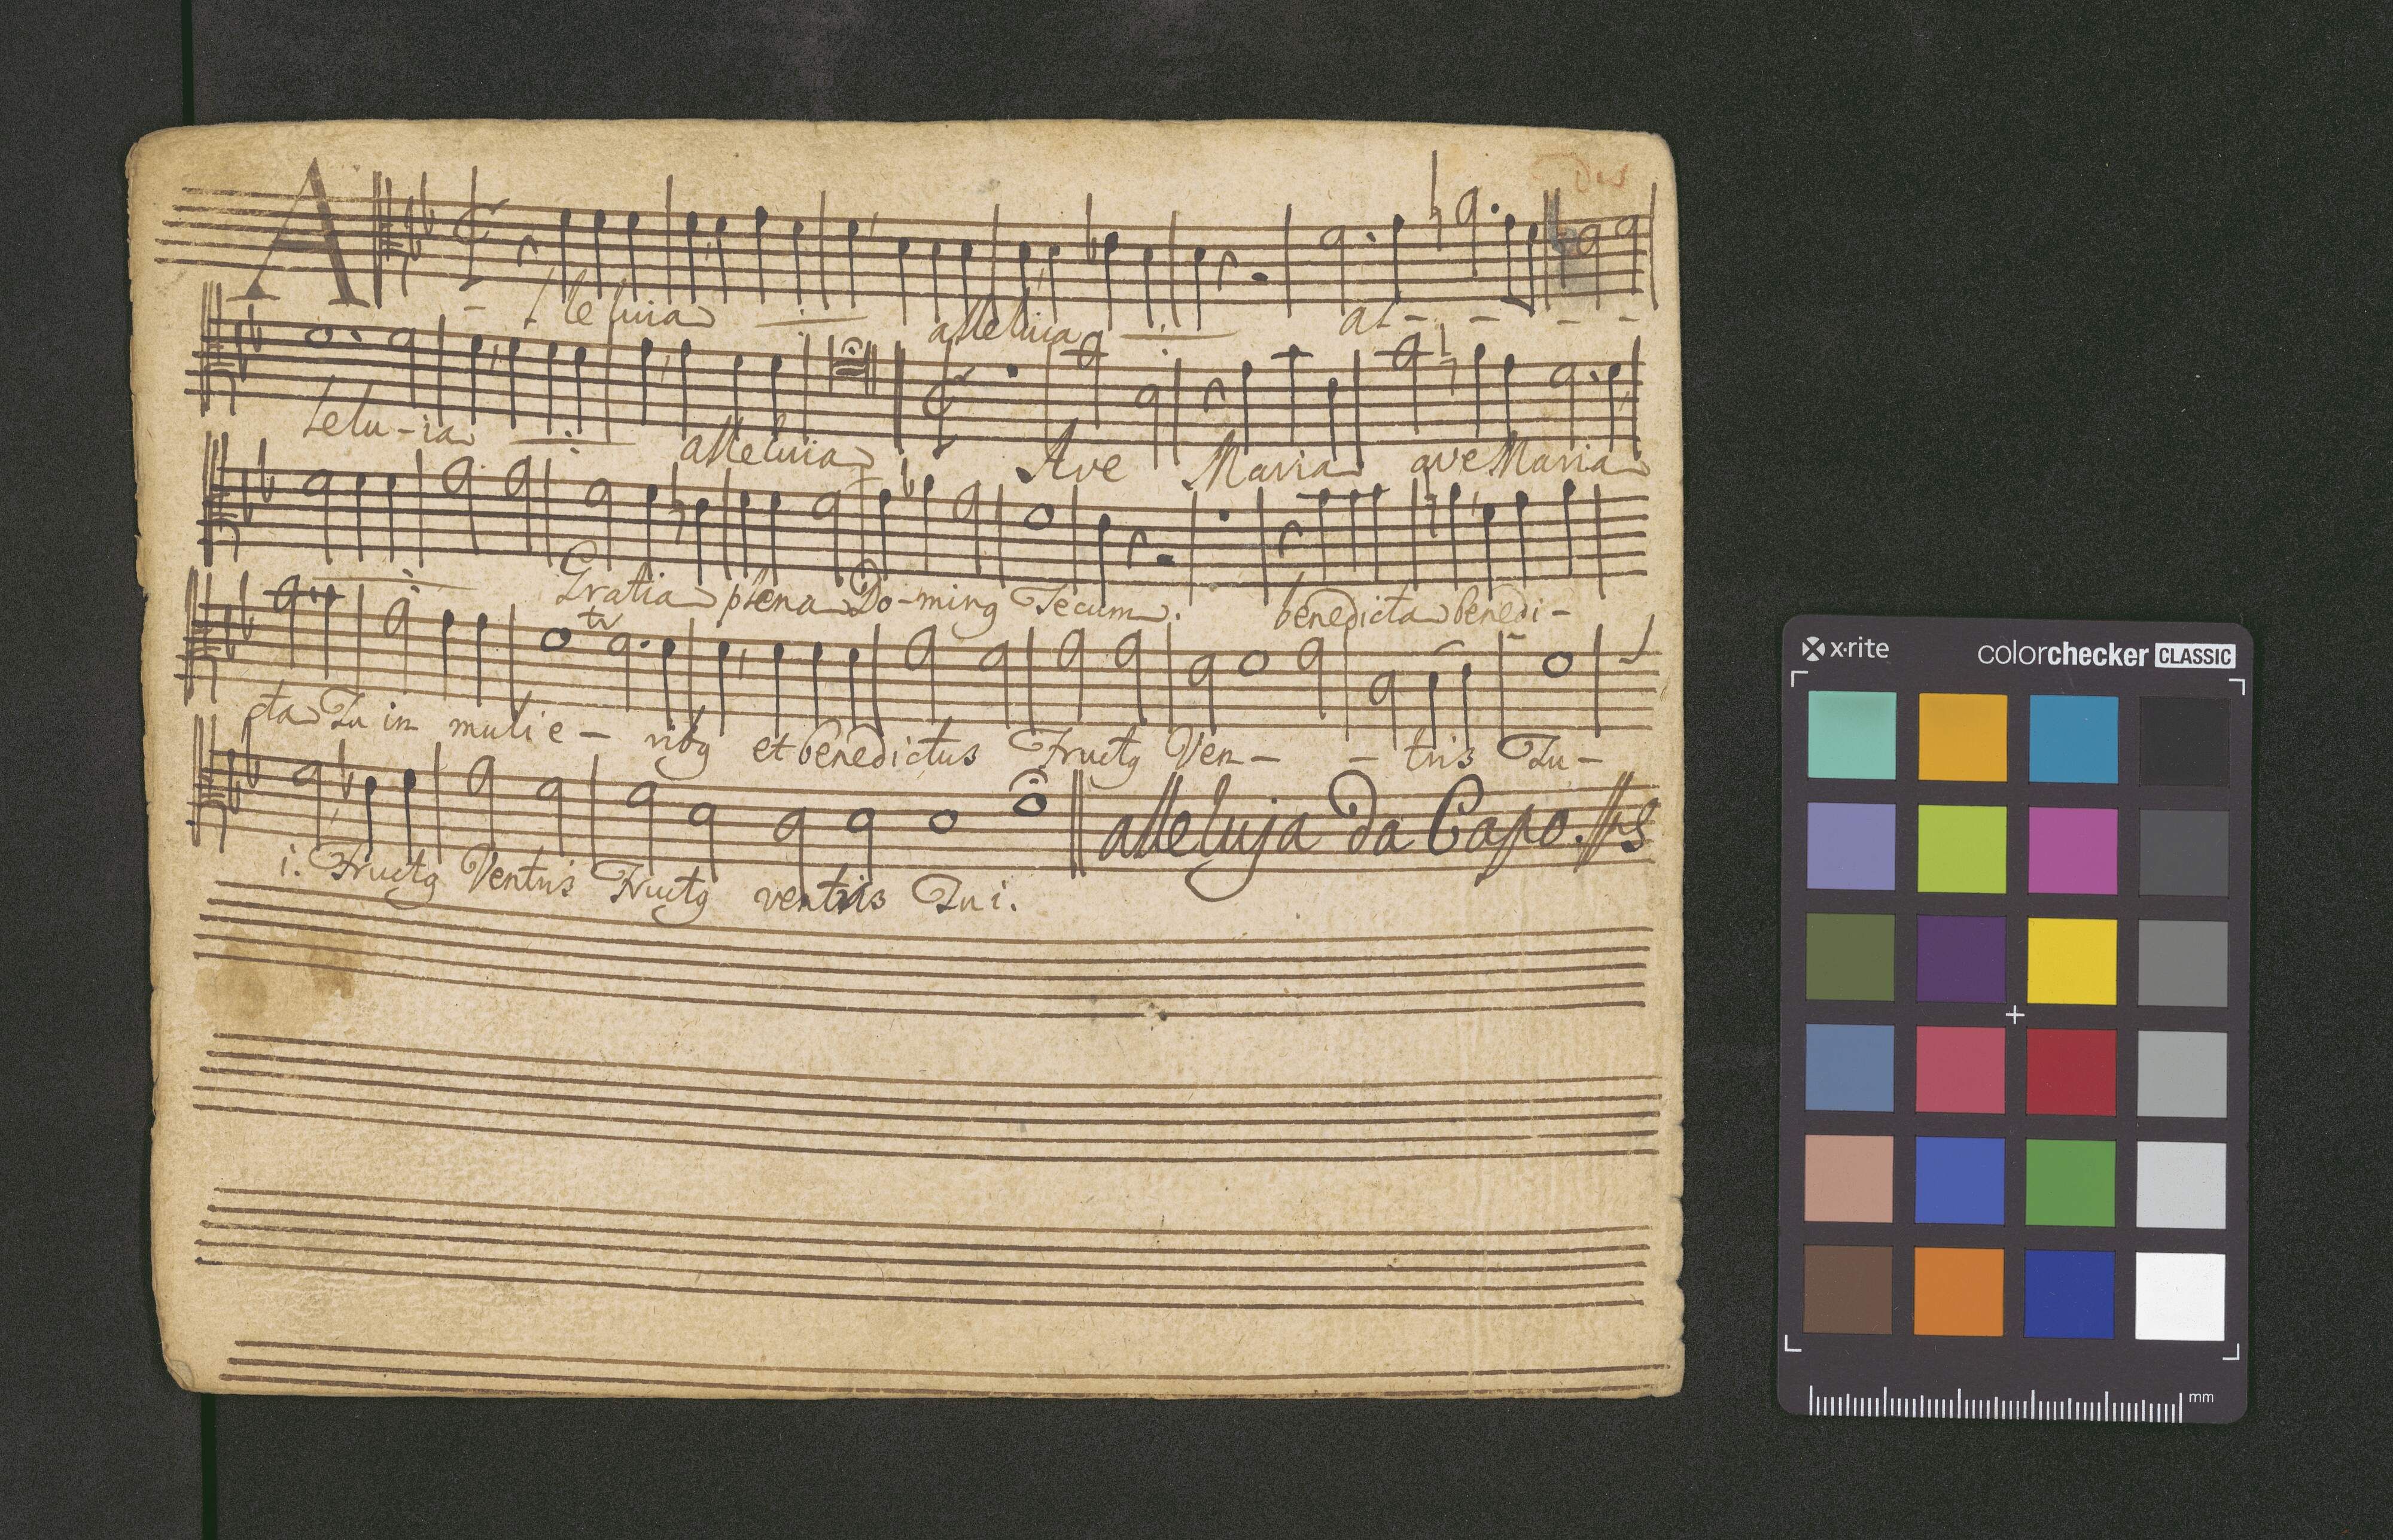 A - lleluia alleluia al - - - -
lelu - ia alleluia Ave Maria ave Maria
tr
Gratia plena Do - ming Tecum. benedicta benedi -
cta Tu in muli e - - ribg et benedictus Fructg Ven - - tris Tu -
i. Fructg Ventris Fructg ventris Tui.
alleluja Da Capo.
x·rite
colorchecker CLASSIC
mm